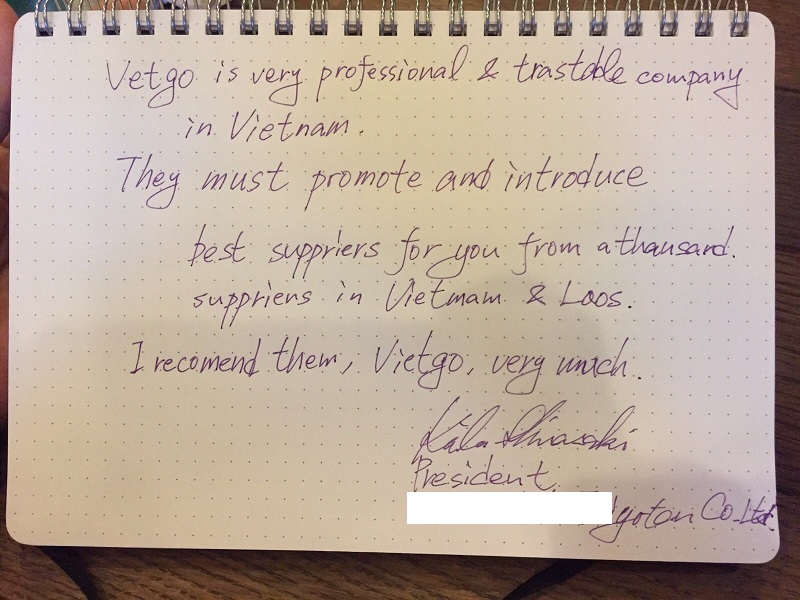 Vetgo is very professional & trastable company
in Vietnam.
They must promote and introduce
best suppriers for you from a thausand.
suppriens in Vietmam & Laos.
I recomend them, Vietgo, very much.
President,
Co. Ltd.